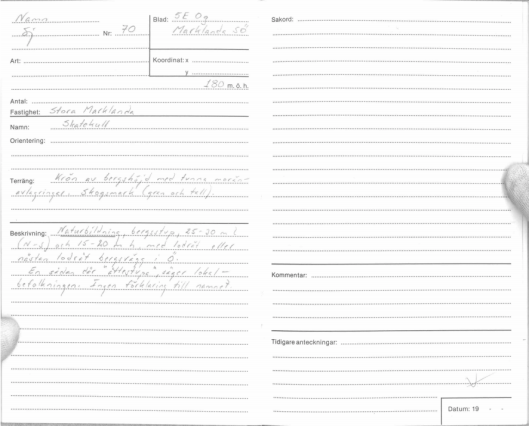 Namn
Nr: 70
Blad: 5E 0g
Marklanda SÖ
Art:
Koordinat: x
y
180 m.ö.h.
Antal:
Fastighet: Stora Marklanda
Namn: Skatekull
Orientering:
Terräng: Krön av bergshöjd med tunna morän-
avlagringar. Skogsmark (gran och tall).
Beskrivning: Naturbildning, bergsstup, 25-30 m l.
(N-S) och 15-20 m h. med lodrät eller
nästan lodrät bergvägg i Ö.
En sådan där "ättestupa", säger lokal-
befolkningen. Ingen förklaring till namnet
Sakord:
Kommentar:
Tidigare anteckningar:
Datum: 19 - -